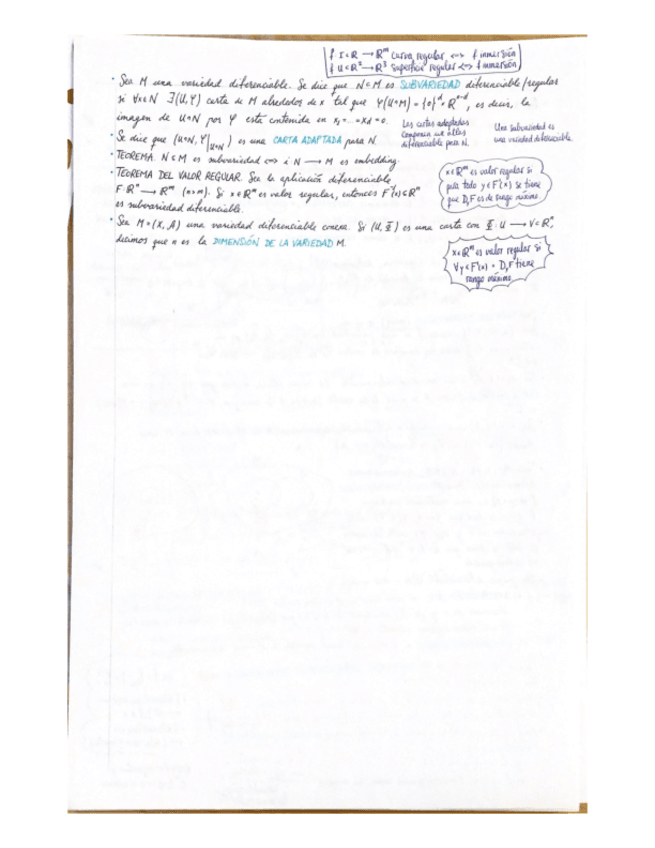 f: I⊂ℝ → ℝᵐ curva regular <=> f inmersión
f: U⊂ℝ² → ℝ³ superficie regular <=> f inmersión
· Sea M una variedad diferenciable. Se dice que N⊂M es SUBVARIEDAD diferenciable/regular
si ∀x∈N ∃(U,φ) carta de M alrededor de x tal que φ(U∩M) = {0}ᵈ × ℝⁿ⁻ᵈ, es decir, la
imagen de U∩N por φ está contenida en x₁=...=xd=0.
Las cartas adaptadas
componen un atlas
diferenciable para N.
Una subvariedad es
una variedad diferenciable.
· Se dice que (U∩N, φ|U∩N) es una CARTA ADAPTADA para N.
· TEOREMA. N⊂M es subvariedad <=> i: N → M es embedding.
· TEOREMA DEL VALOR REGULAR. Sea la aplicación diferenciable
F: ℝⁿ → ℝᵐ (n>m). Si x∈ℝᵐ es valor regular, entonces F⁻¹(x)⊂ℝⁿ
es subvariedad diferenciable.
x∈ℝᵐ es valor regular si
para todo y∈F⁻¹(x) se tiene
que DyF es de rango máximo.
· Sea M=(X,A) una variedad diferenciable conexa. Si (U,Φ) es una carta con Φ: U → V⊂ℝⁿ,
decimos que n es la DIMENSIÓN DE LA VARIEDAD M.
x∈ℝᵐ es valor regular si
∀y∈F⁻¹(x) DyF tiene
rango máximo